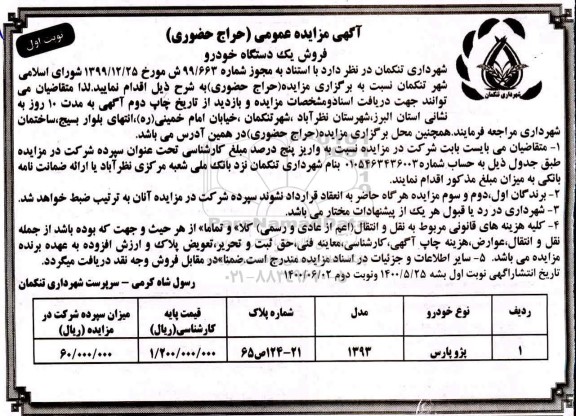 نوبت اول
آگهی مزایده عمومی (حراج حضوری)
فروش یک دستگاه خودرو
شهرداری تنکمان
شهرداری تنکمان در نظر دارد با استناد به مجوز شماره ۹۹/۶۶۳ ش مورخ ۱۳۹۹/۱۲/۲۵ شورای اسلامی
شهر تنکمان نسبت به برگزاری مزایده(حراج حضوری)به شرح ذیل اقدام نمایید.لذا متقاضیان می
توانند جهت دریافت اسنادومشخصات مزایده و بازدید از تاریخ چاپ دوم آگهی به مدت ۱۰ روز به
نشانی استان البرز،شهرستان نظرآباد ،شهرتنکمان ،خیابان امام خمینی(ره)،انتهای بلوار بسیج،ساختمان
شهرداری مراجعه فرمایند.همچنین محل برگزاری مزایده(حراج حضوری)در همین آدرس می باشد.
۱- متقاضیان می بایست بابت شرکت در مزایده نسبت به واریز پنج درصد مبلغ کارشناسی تحت عنوان سپرده شرکت در مزایده
طبق جدول ذیل به حساب شماره۰۱۰۵۴۶۳۴۳۶۰۰۳ بنام شهرداری تنکمان نزد بانک ملی شعبه مرکزی نظرآباد یا ارائه ضمانت نامه
بانکی به میزان مبلغ مذکور اقدام نمایند.
۲- برندگان اول،دوم و سوم مزایده هرگاه حاضر به انعقاد قرارداد نشوند سپرده شرکت در مزایده آنان به ترتیب ضبط خواهد شد.
۳- شهرداری در رد یا قبول هر یک از پیشنهادات مختار می باشد.
۴- کلیه هزینه های قانونی مربوط به نقل و انتقال(اعم از عادی و رسمی) کلا» و تماما» از هر حیث و جهت که بوده باشد از جمله
نقل و انتقال،عوارض،هزینه چاپ آگهی،کارشناسی،معاینه فنی،حق ثبت و تحریر،تعویض پلاک و ارزش افزوده به عهده برنده
مزایده می باشد. ۵- سایر اطلاعات و جزئیات در اسناد مزایده مندرج است.ضمنا»در مقابل فروش وجه نقد دریافت میگردد.
تاریخ انتشارآگهی نوبت اول بشه ۱۴۰۰/۵/۲۵ ونوبت دوم ۱۴۰۰/۰۶/۰۲
رسول شاه گرمی – سرپرست شهرداری تنکمان
ردیف نوع خودرو مدل شماره پلاک قیمت پایه کارشناسی(ریال) میزان سپرده شرکت در مزایده (ریال)
۱ پژو پارس ۱۳۹۳ ۲۱-۱۲۴ص۶۵ ۱/۲۰۰/۰۰۰/۰۰۰ ۶۰/۰۰۰/۰۰۰